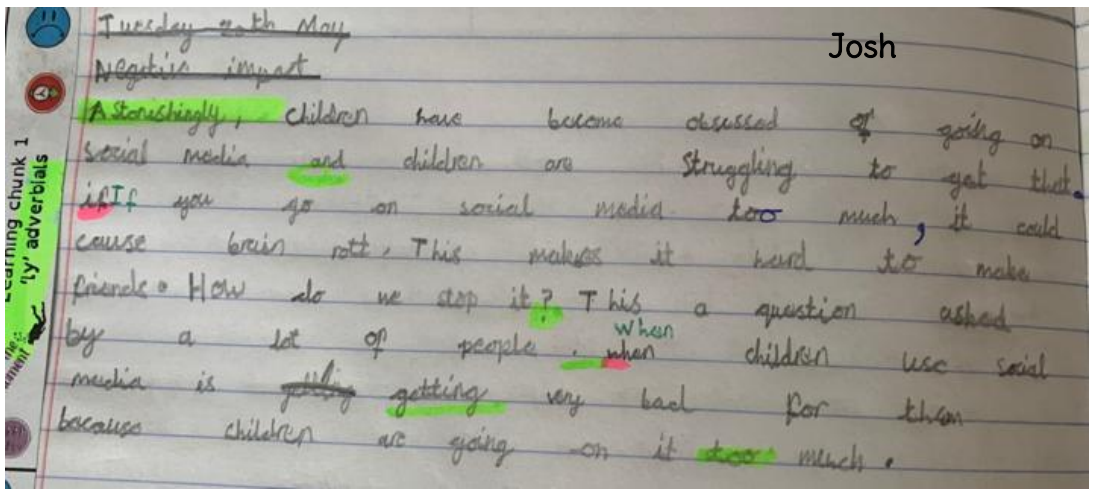 Josh
Tuesday 20th May
Negitive impact
Astonishingly, children have become obsessed of going on
social media and children are struggling to get that.
if If you go on social media too much, it could
cause brain rott, This makes it hard to make
friends. How do we stop it? This a question asked
When
by a lot of people. when children use social
media is getting getting very bad for them
because children are going on it too much.
Learning chunk 1
'ly' adverbials